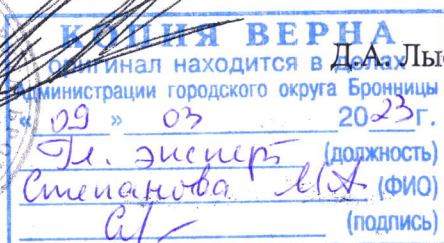 КОПИЯ ВЕРНА
оригинал находится в делах Д.А. Лы
Администрации городского округа Бронницы
« 09 » 03 2023г.
Гл. эксперт (должность)
Степанова М.А (ФИО)
(подпись)